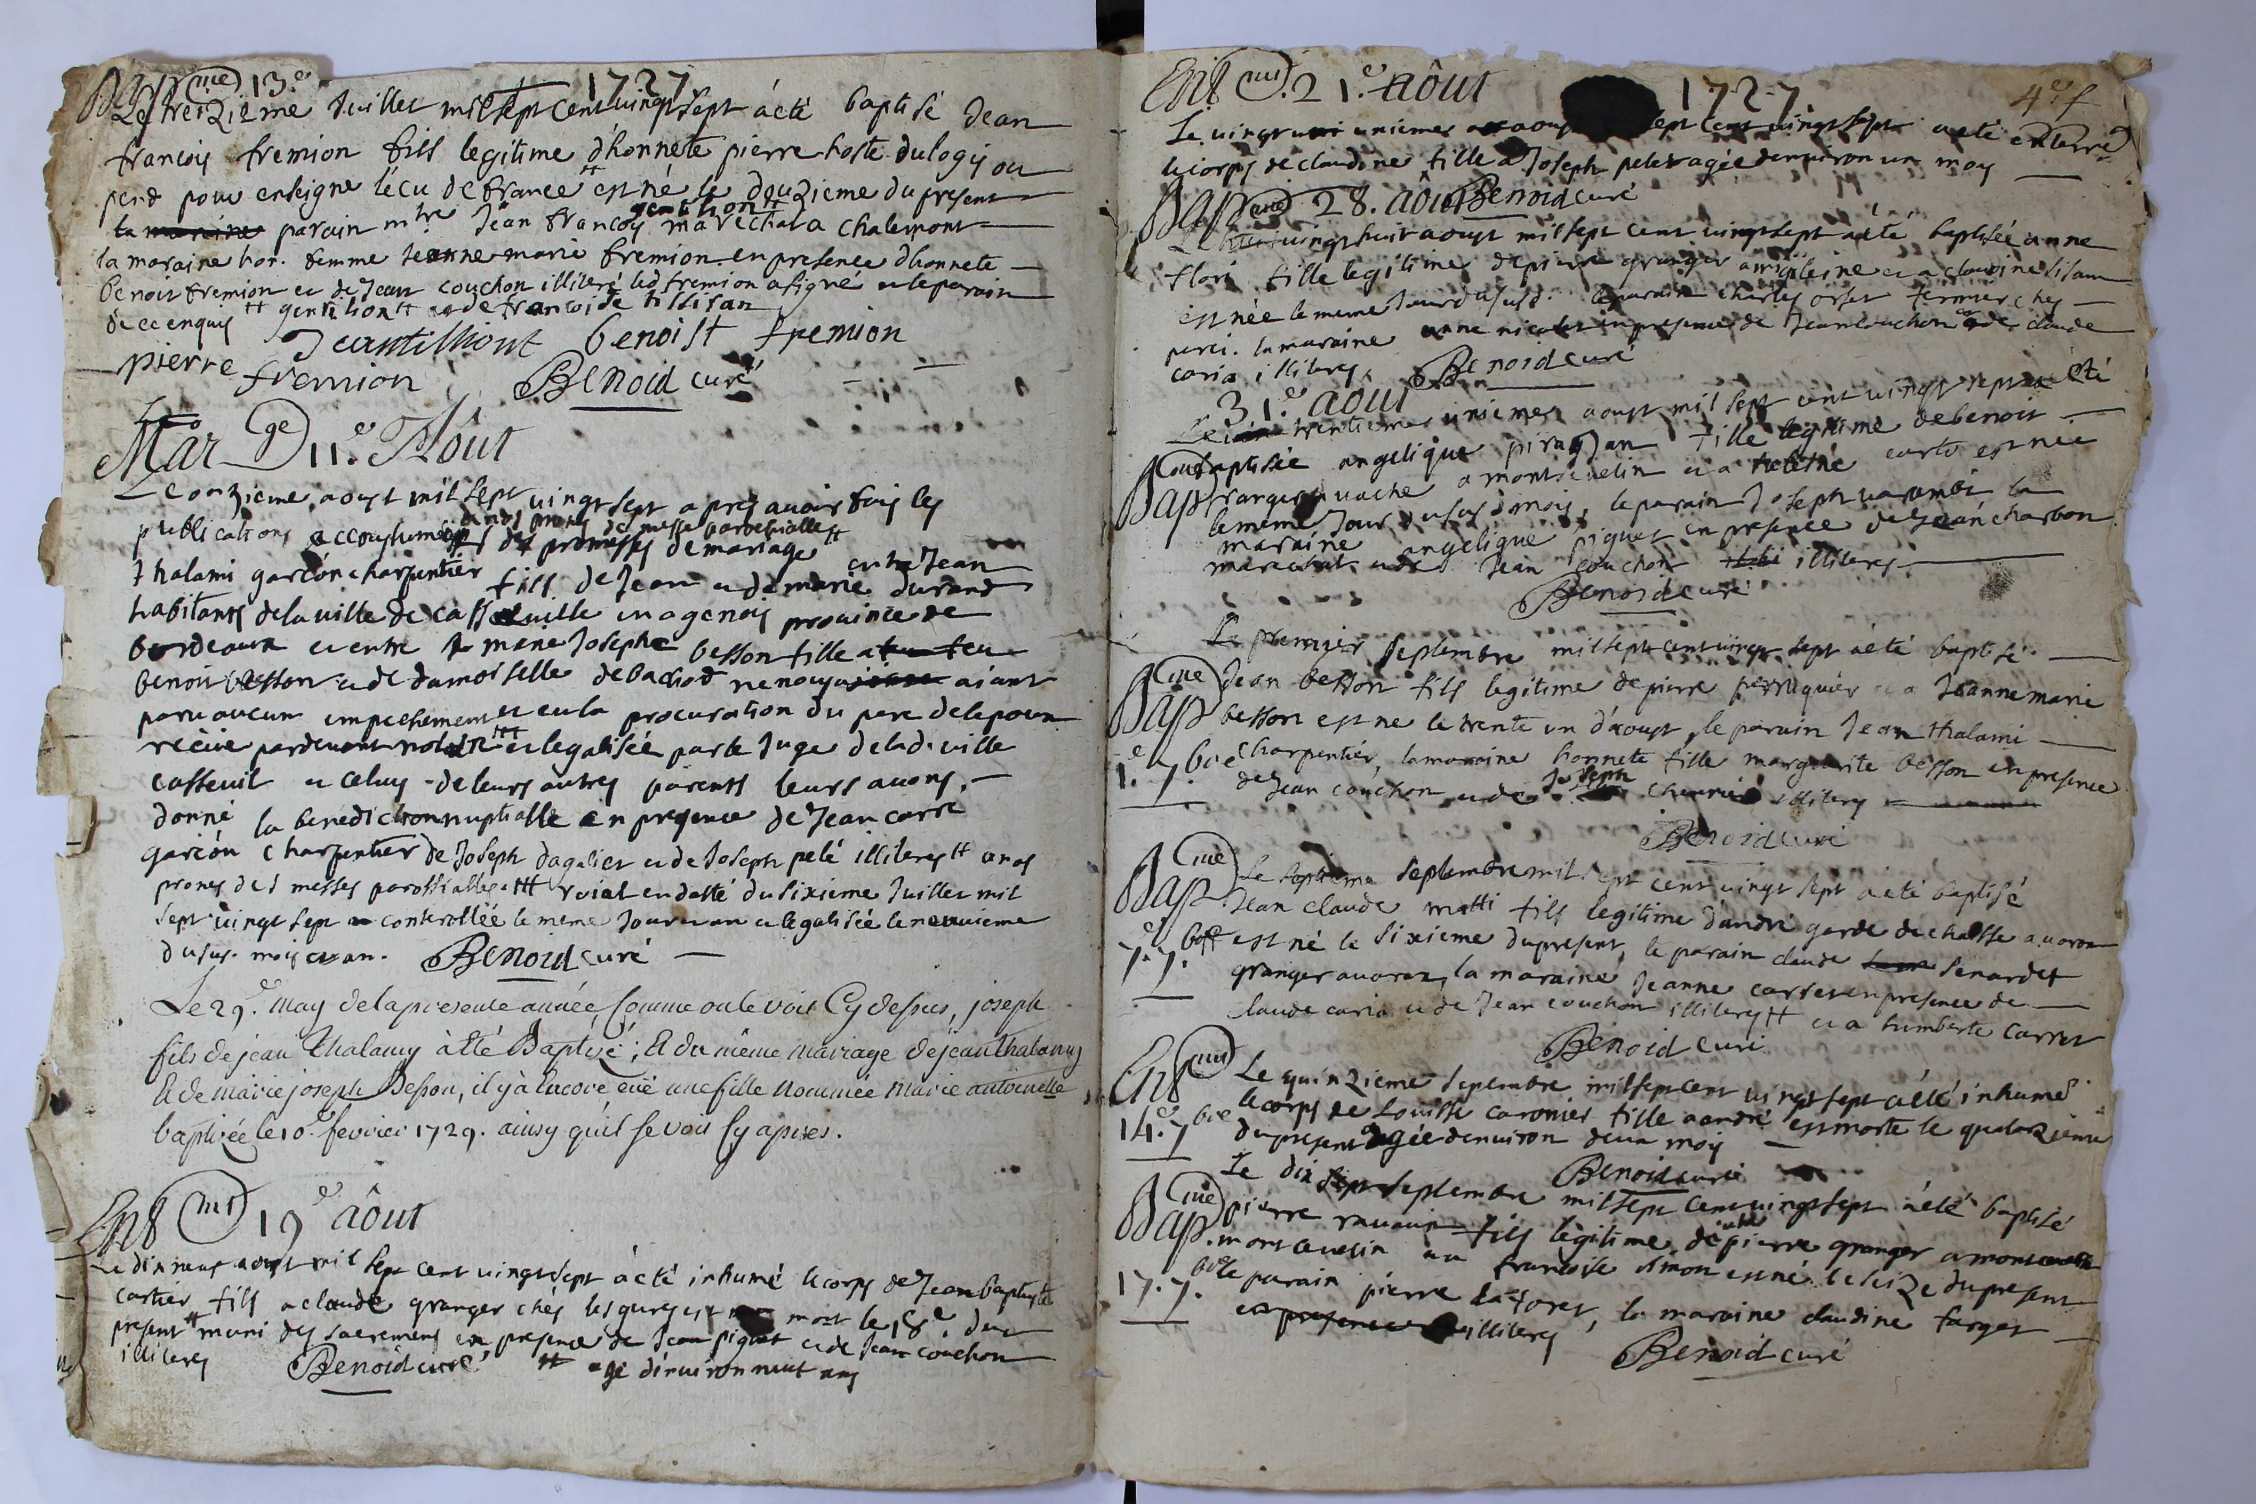 Bap me 13e 1727
Le treizieme Juillet mil sept cent vingt sept á été baptisé Jean
francois fremion fils legitime d'honnete pierre hoste du logis ou
pend pour enseigne l'écu de france est né le douzieme du present
la maraine parain mtre Jean francois gentilhon marechal a chalemont
la maraine hon. femme Jeanne marie fremion en presence d'honnete
benoit fremion et de Jean couchon illiteré led fremion a signé et le parain
de ce enquis # gentilhon # et de francoise tissiran
Jean tillliont benoist fremion
pierre fremion Benoid curé
Mar ge 11e Aôut
Le onzieme aoust mil sept vingt sept apres avoir fais les
publications accoustumées des promesses de mariage # entre Jean
a nos prones de messe paroissialle #
thalami garcon charpentier fils de Jean et de marie durand
habitants de la ville de casseuille en agenois province de
bordeaux et entre marie Josephe besson fille a feu
benoit besson et de damoiselle debachod ne nous aiant
paru aucun empechement et eu la procuration du pere de lepoux
recüe pardevant notaire ### et legalisée par le Juge de lad. ville
casseuil et celuy de leurs autres parents leurs avons
donné la benediction nuptialle en presence de Jean carré
garcon charpentier de Joseph dagalier et de Joseph pelé illiteres # a nos
prones des messes paroissialles ### roial en datté du sixieme Juillet mil
sept vingt sept controllée le meme Jour et an et legalisée le neuvieme
du sus. mois et an. Benoid curé
Le 29e. May de la presente année comme on le voit Cy dessus, joseph
fils de jean Thalamy à été Baptisé; Et du même mariage de jean thalamy
Et de marie joseph Besson, il y à Encore eüe une fille nommée Marie antoinette
baptisée le 10e. fevrier 1729. ainsy qu'il se voit Cy apres.
Ent mt 19e aôut
Le dix neuf aoust mil sept cent vingt sept á été inhumé le corps de Jean baptiste
cartier fils a claude granger chés les gures est mort le 18e. du
present # muni des sacrements en presence de Jean piguet et de Jean couchon
illiteres Benoid curé # agé d'environ neuf ans
Ent mt. 21e. aôut 1727 4e. f
Le vingt unieme aoust sept cent vingt sept a été enterré
le corps de claudine fille a Joseph pelet agée denviron un mois
Bap me 28. aôut Benoid curé
Le vingt huit aoust mil sept cent vingt sept a été baptisée anne
flori fille legitime de pierre granger a et a claudine
est née le meme Jour du susd. le parain charles orset fermier ches
perci. la maraine anne nicolet en presence de Jean couchon et de claude
caria illiteres. Benoid curé
31e. aôut
Le trentieme unieme aoust mil sept cent vingt sept a été
Bap baptisée angelique fille legitime de benoit
granger a montcevelin et a curto est née
le meme Jour du susd mois, le parain Joseph varambi la
maraine angelique piguet en presence de Jean charbon
marechal et de Jean couchon illiteres.
Benoid curé
Le premier septembre mil sept cent vingt sept á été baptisé
Bap me Jean besson fils legitime de pierre perruquier et a Jeanne marie
besson est né le trente un d'aoust, le parain Jean thalami
1e. 7bre charpentier, la maraine honnete fille marguerite besson en presence
de Jean couchon et de Joseph illiteres
Benoid curé
Bap me Le septieme septembre mil sept cent vingt sept a été baptisé
Jean claude matti fils legitime d'andré garde de chasse a varax
7e. 7bre est né le sixieme du present, le parain claude senardet
granger a varax, la maraine Jeanne carret en presence de
claude caria et de Jean couchon illiteres # et a humberte carret
Benoid curé
Ent mt Le quinzieme septembre mil sept cent vingt sept a été inhumé
le corps de Louisse caronier fille a andré est morte le quatorzieme
14e. 7bre du present agée denviron deux mois
Benoid curé
Le dix sept septembre mil sept cent vingt sept á été baptisé
Bap me pierre ravaux fils legitime de pierre granger a montcevelin
montcevelin et a francoise simon est né le seize du present
17. 7bre le parain pierre la foret, la maraine claudine farget
en presence illiteres
Benoid curé